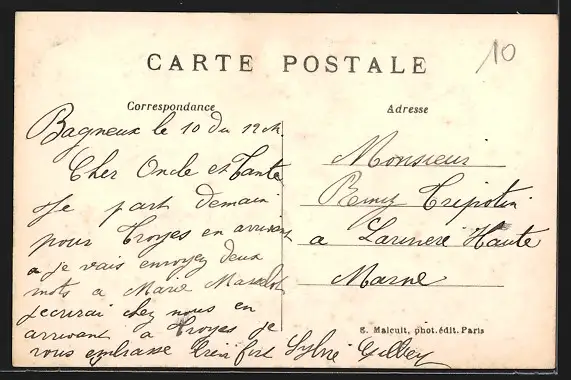 10
CARTE POSTALE
Correspondance
Bagneux le 10 du 12
Cher Oncle et Tante
Je part demain
pour Troyes en arrivent
je vais envoyez deux
mots a Marie
jecrirai chez nous en
arrivant a Troyes je
vous embrasse bien fort Sylvie
Adresse
Monsieur
Remy Tripotin
a Haute
Marne
E. Malcuit, phot. édit. Paris